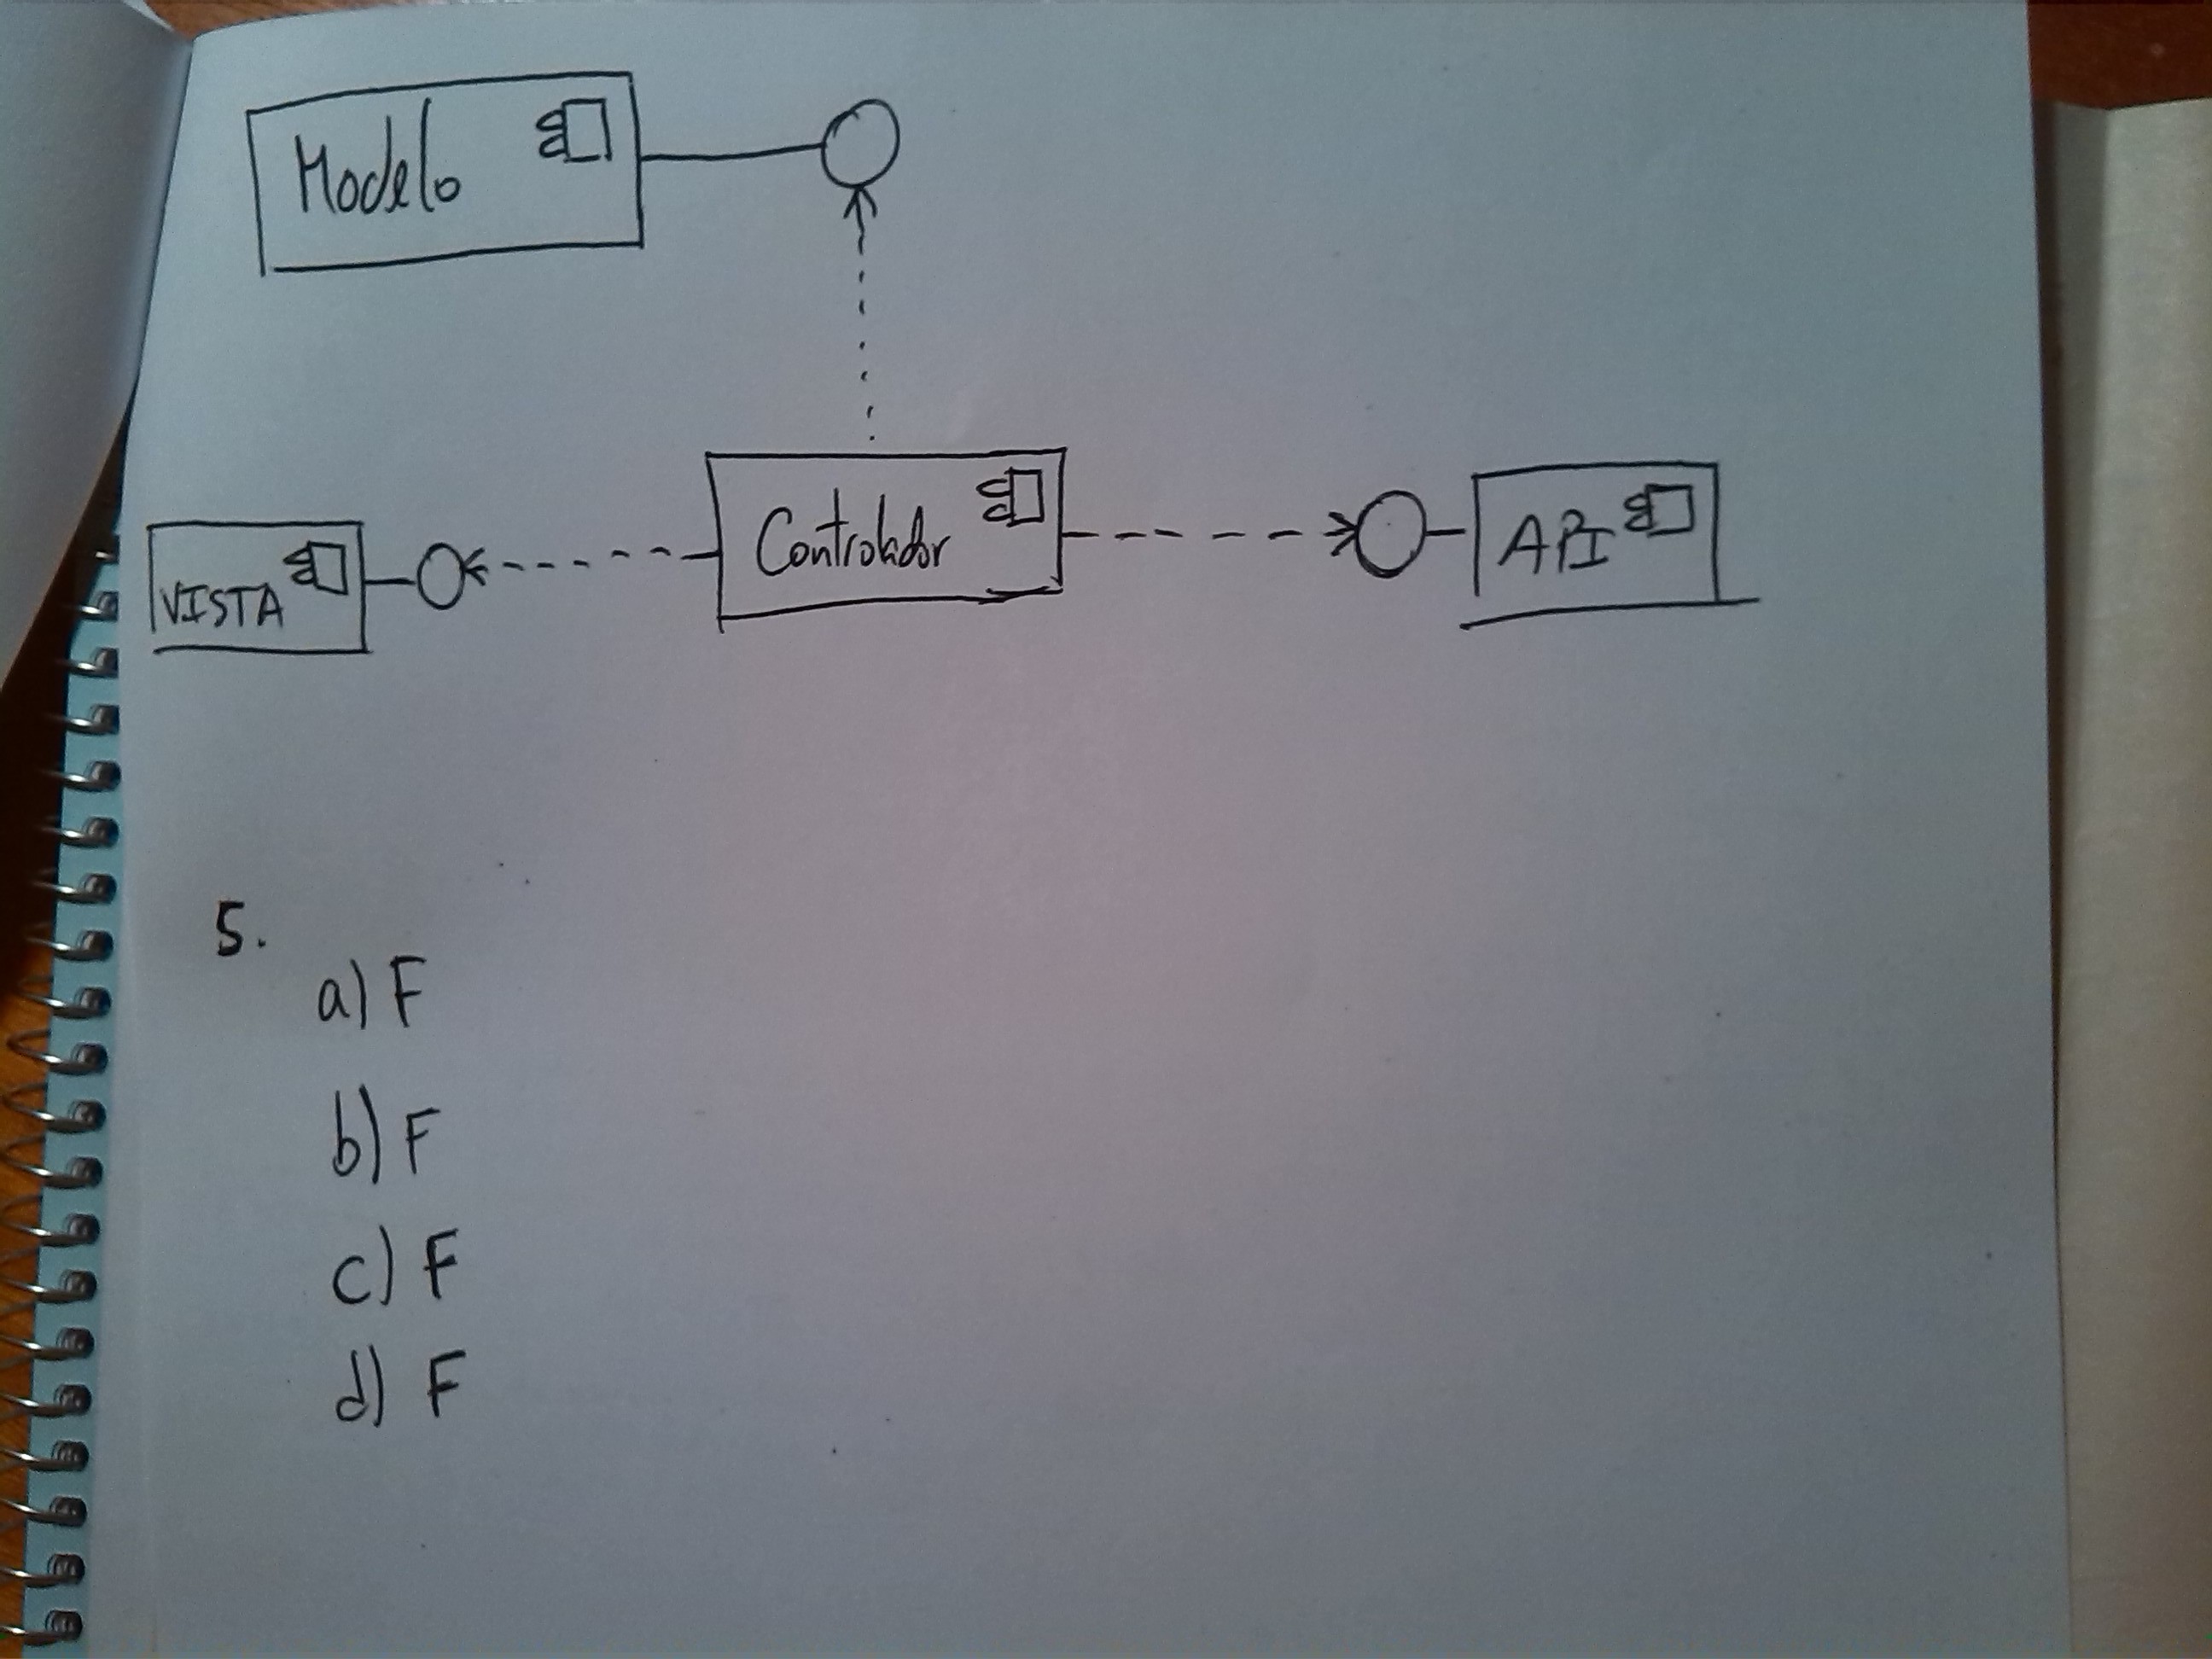 Modelo
VISTA
Controlador
API
5.
a) F
b) F
c) F
d) F